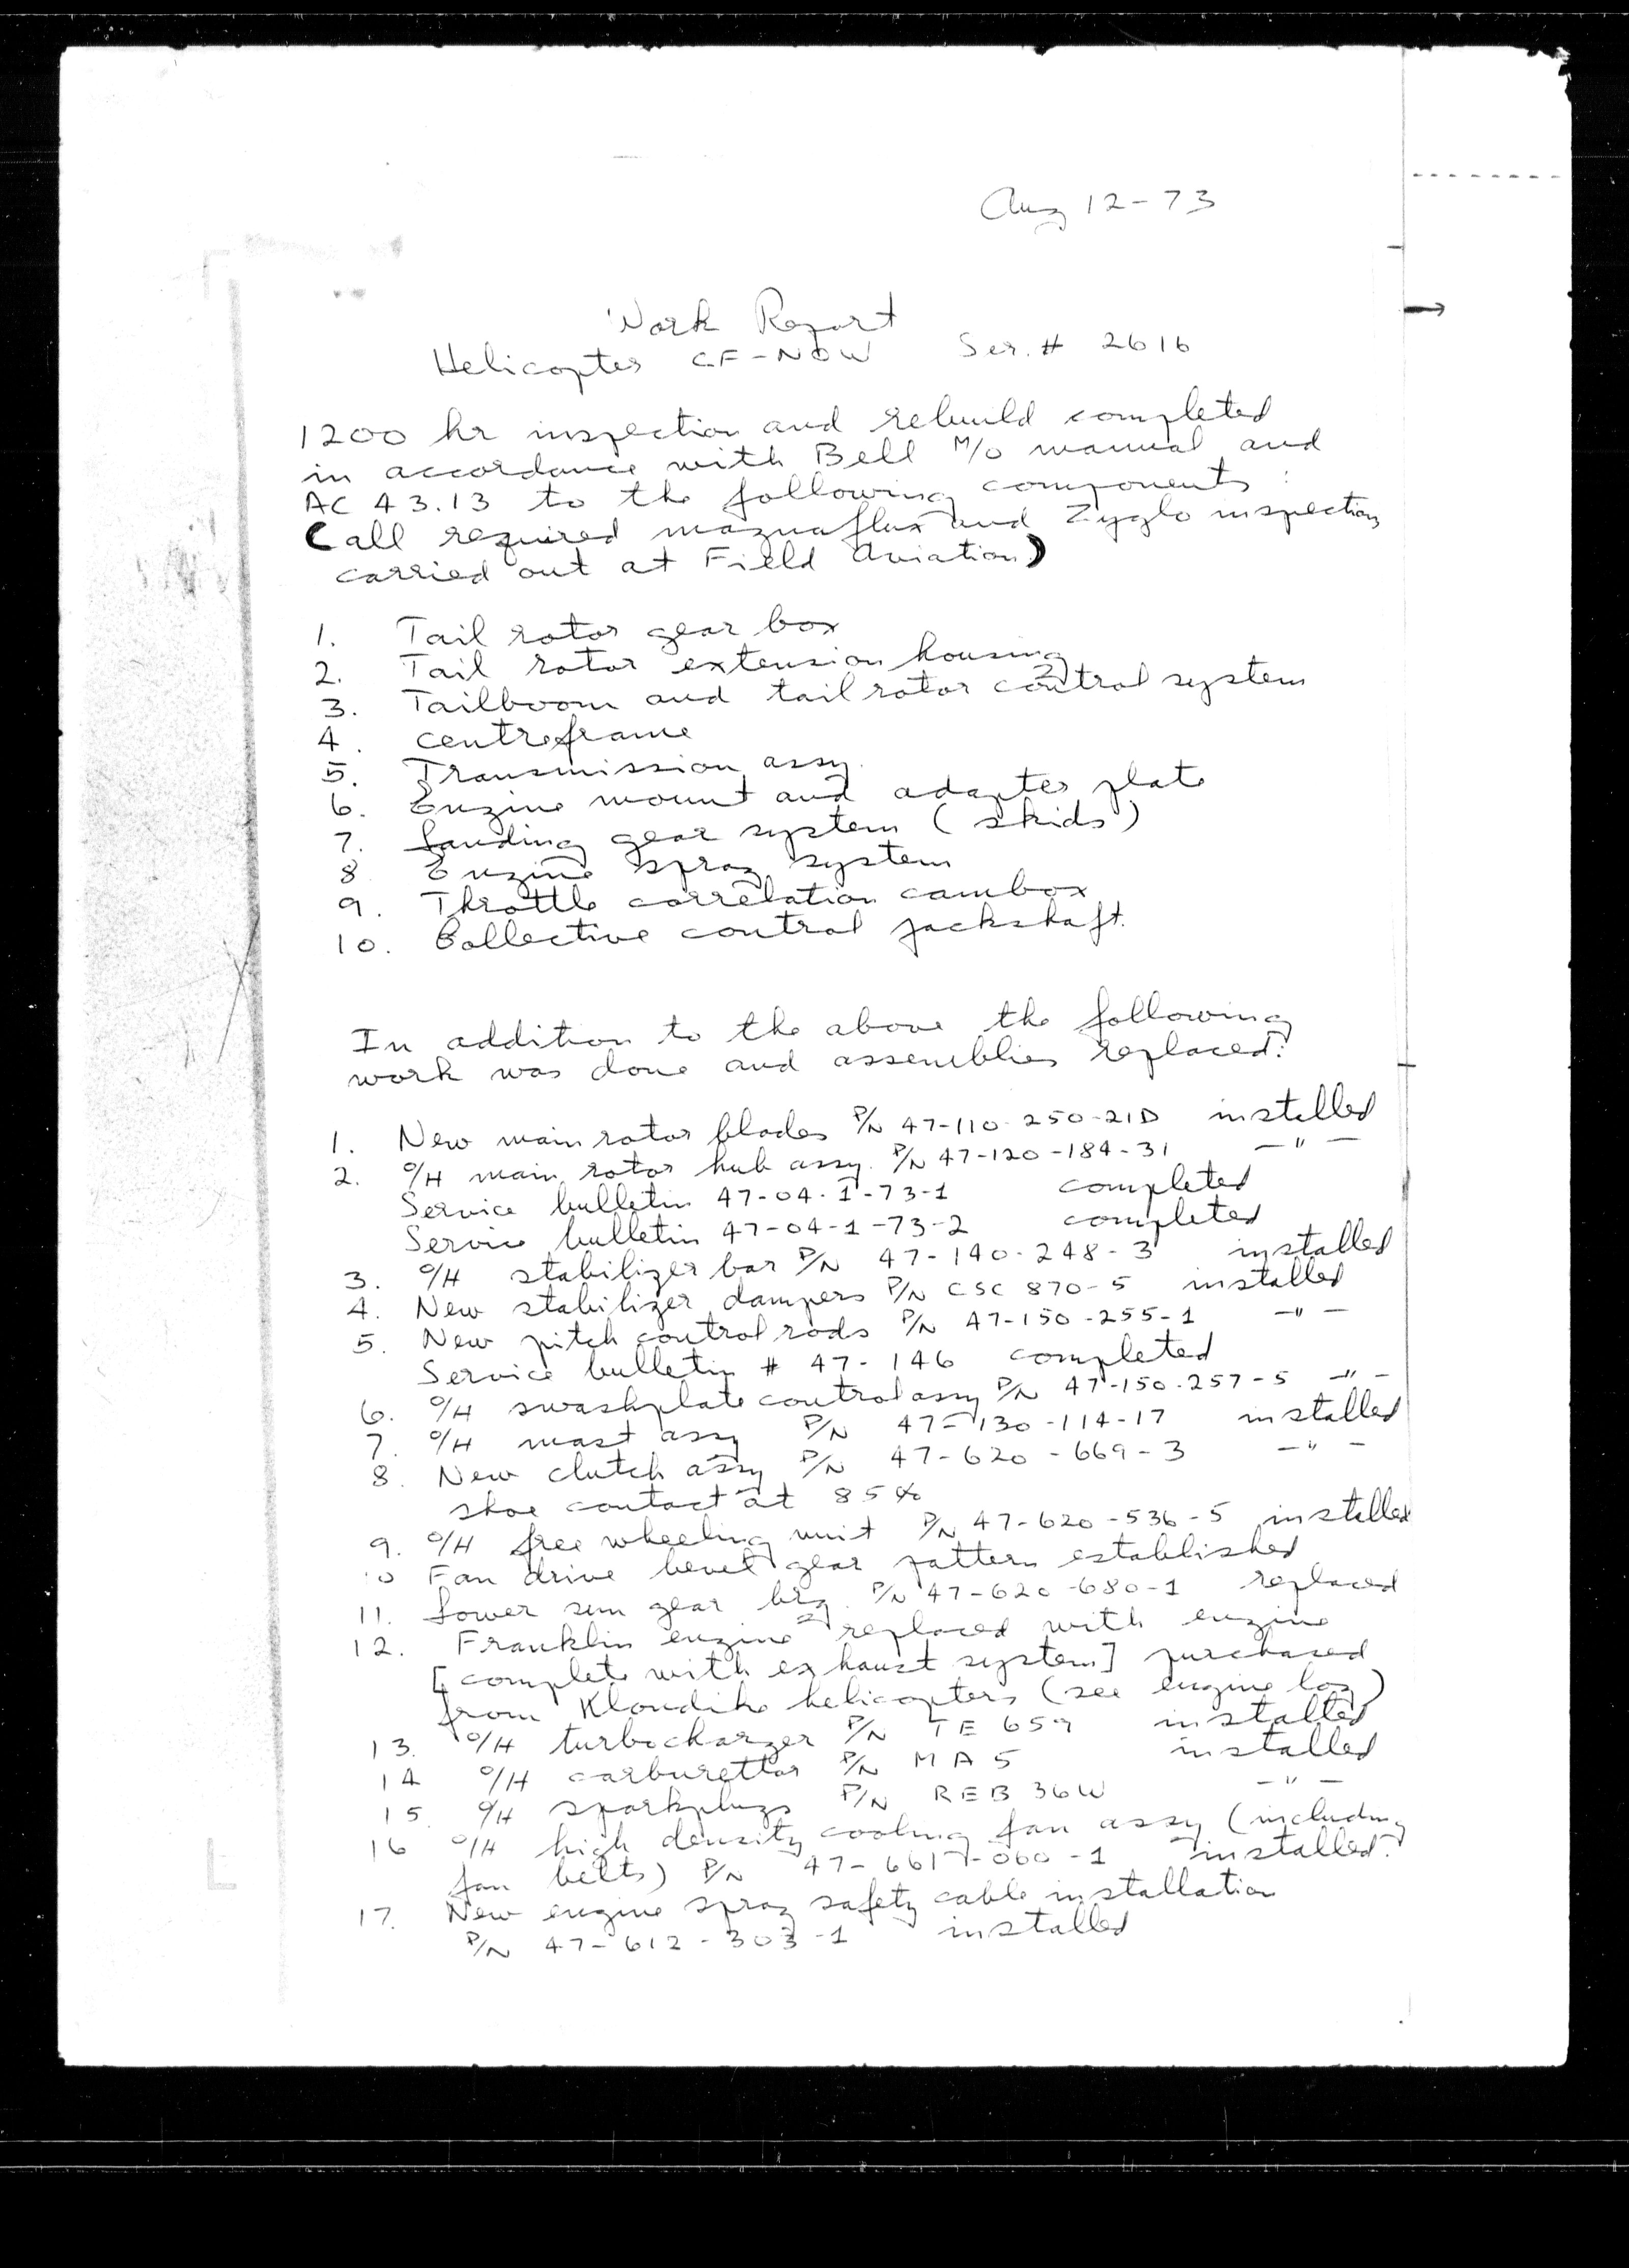 Aug 12-73
Work Report
Helicopter CF-NOW Ser. # 2616
1200 hr inspection and rebuild completed
in accordance with Bell M/O manual and
AC 43.13 to the following components :
(all required magnaflux and Zyglo inspections
carried out at Field Aviation)
1. Tail rotor gear box
2. Tail rotor extension housing
3. Tailboom and tail rotor control system
4. centreframe
5. Transmission assy.
6. Engine mount and adapter plate
7. Landing gear system (skids)
8 Engine spray system
9. Throttle correlation cambox
10. Collective control jackshaft.
In addition to the above the following
work was done and assemblies replaced:
1. New main rotor blades P/N 47-110-250-21D installed
2. O/H main rotor hub assy. P/N 47-120-184-31 -"-
Service bulletin 47-04-1-73-1 completed
Service bulletin 47-04-1-73-2 completed
3. O/H stabilizer bar P/N 47-140-248-3 installed
4. New stabilizer dampers P/N CSC 870-5 installed
5. New pitch control rods P/N 47-150-255-1 -"-
Service bulletin # 47-146 completed
6. O/H swashplate control assy P/N 47-150-257-5 -"-
7. O/H mast assy P/N 47-130-114-17 installed
8. New clutch assy P/N 47-620-669-3 -"-
shoe contact at 85%
9. O/H free wheeling unit P/N 47-620-536-5 installed
10 Fan drive bevel gear pattern established
11. Lower sun gear brg. P/N 47-620-680-1 replaced
12. Franklin engine replaced with engine
[complete with exhaust system] purchased
from Klondike helicopters (see engine log)
13. O/H turbocharger P/N TE 659 installed
14 O/H carburettor P/N MA5 installed
15. O/H sparkplugs P/N REB 36W -"-
16 O/H high density cooling fan assy (including
fan belts) P/N 47-661-060-1 installed.
17. New engine spray safety cable installation
P/N 47-612-303-1 installed